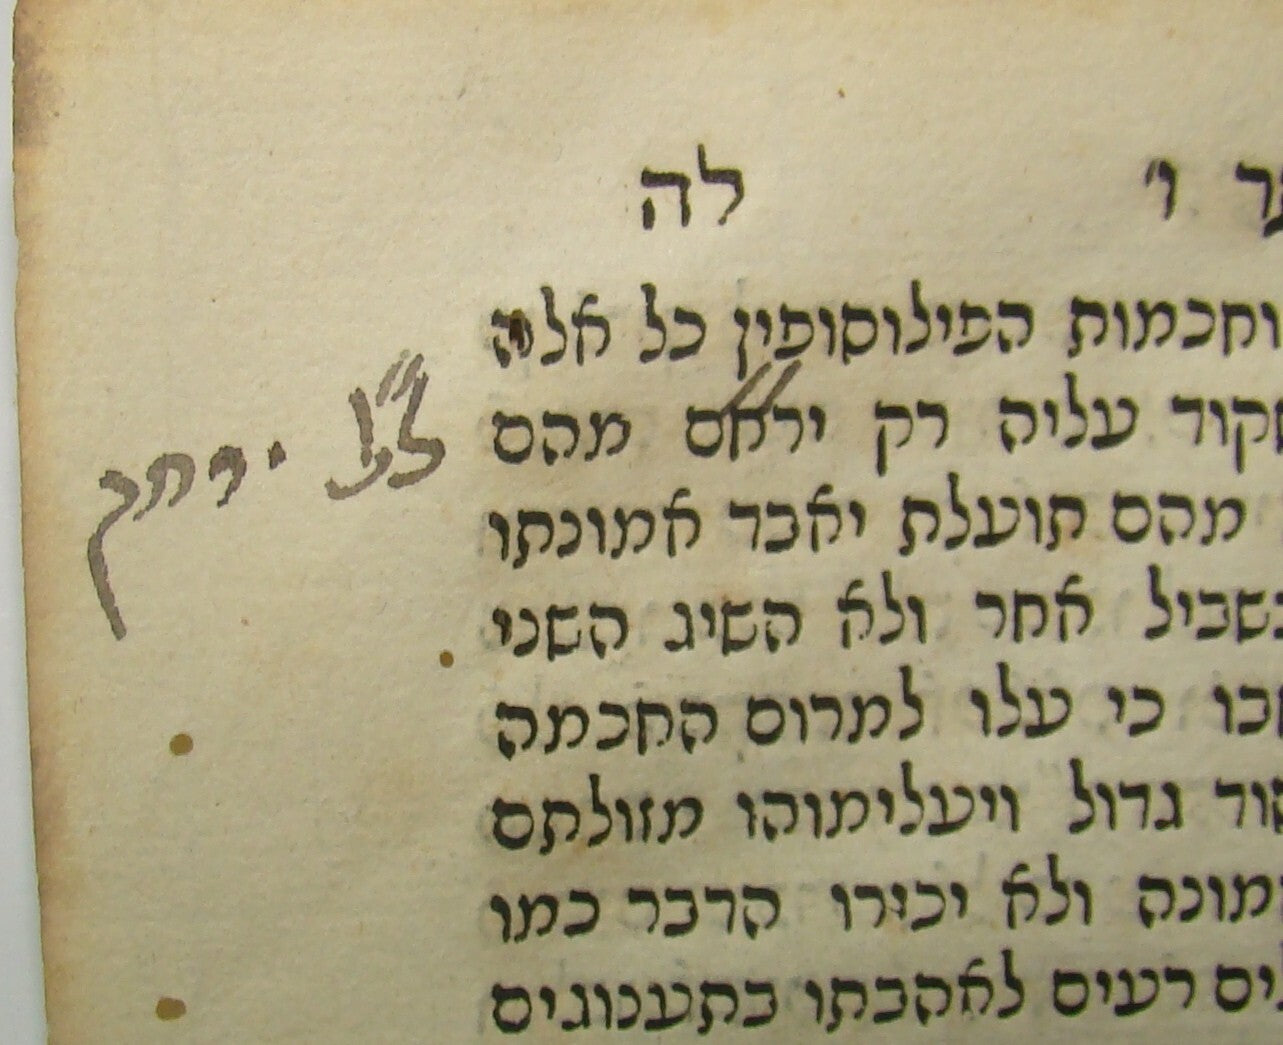 ו' לה
וחכמות הפילוסופין כל אלה
עליה רק יראם מהם
מהם תועלת יאבד אמונתו
אחר ולא השיג השני
כי עלו למרום החכמה
גדול ויעלימוהו מזולתם
ולא יכירו הדבר כמו
רעים לאהבתו בתענוגים
ירחק